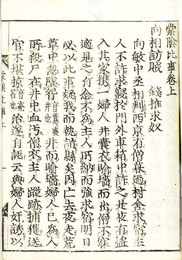 棠陰比事卷上
向相訪賊 錢推求奴
向敏中丞相判西京有僧暮過村舍求宿主
人不許求寢於門外車箱中許之是夜有盜
入其家携一婦人并囊衣踰墻而出僧不寐
適見之自念不為主人所納而強求宿明日
必以此事疑我而執詣縣矣因亡去夜走荒
草中忽墜眢井而踰墻婦人已為人
所殺尸在井中血汚僧衣主人蹤跡捕獲送
官不堪掠治遂自誣云與婦人奸誘以